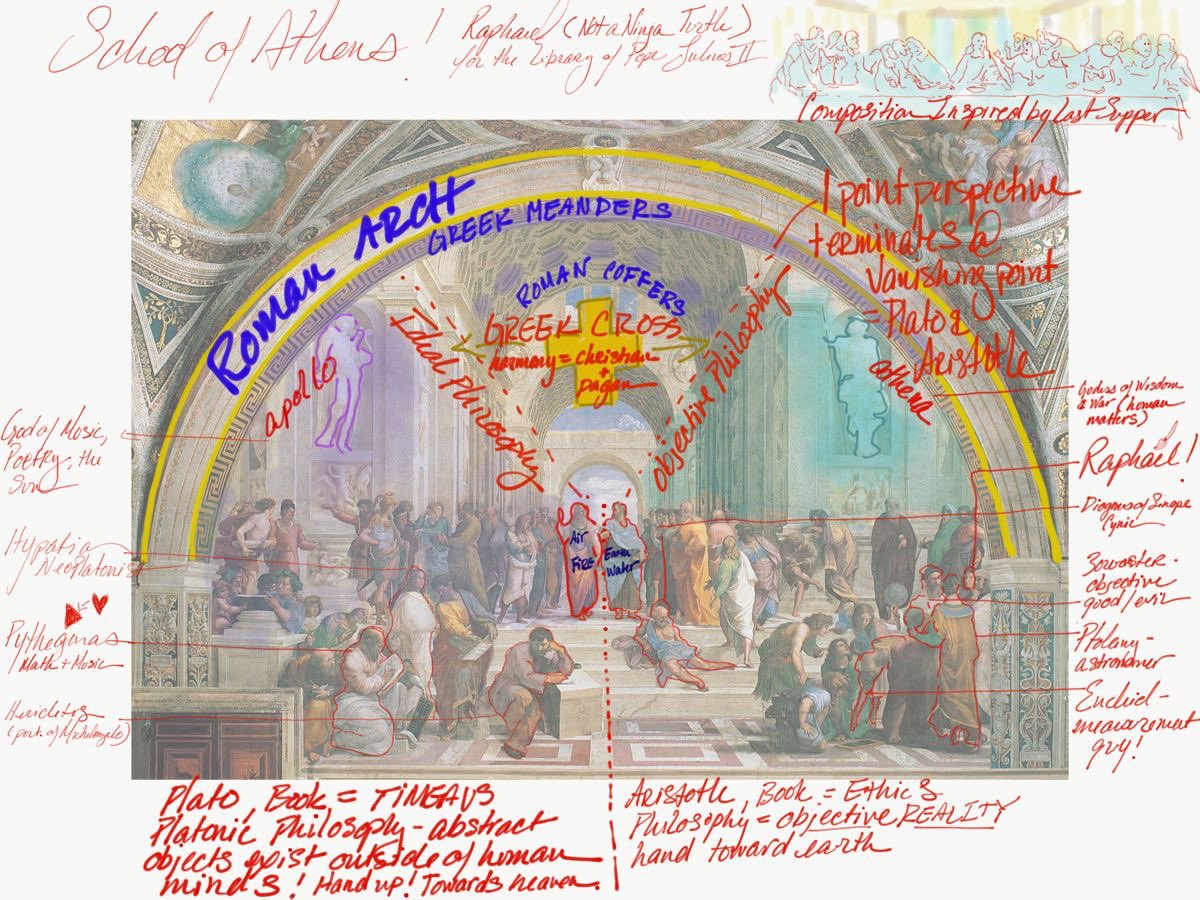 School of Athens!
Raphael (Not a Ninja Turtle)
for the Library of Pope Julius II
Composition Inspired by Last Supper
Roman ARCH
GREEK MEANDERS
ROMAN COFFERS
GREEK CROSS
harmony = christian
+
pagan
1 point perspective
terminates @
Vanishing point
= Plato &
Aristotle
apollo
Ideal Philosophy
objective Philosophy
athena
God of Music,
Poetry, the
Sun
Hypatia
Neoplatonist
Pythagoras
Math + Music
(port. of Michelangelo)
Air
FIRE
Earth
Water
Godess of Wisdom
& War (human
matters)
Raphael!
Diogenes of Sinope
Cynic
Zoroaster -
objective
good/evil
Ptolamy -
astronomer
Euclid -
measurement
guy!
Plato, Book = TIMEAUS
Platonic Philosophy - abstract
objects exist outside of human
minds! Hand up! Towards heaven.
Aristotle, Book = Ethics
Philosophy = objective REALITY
hand toward earth